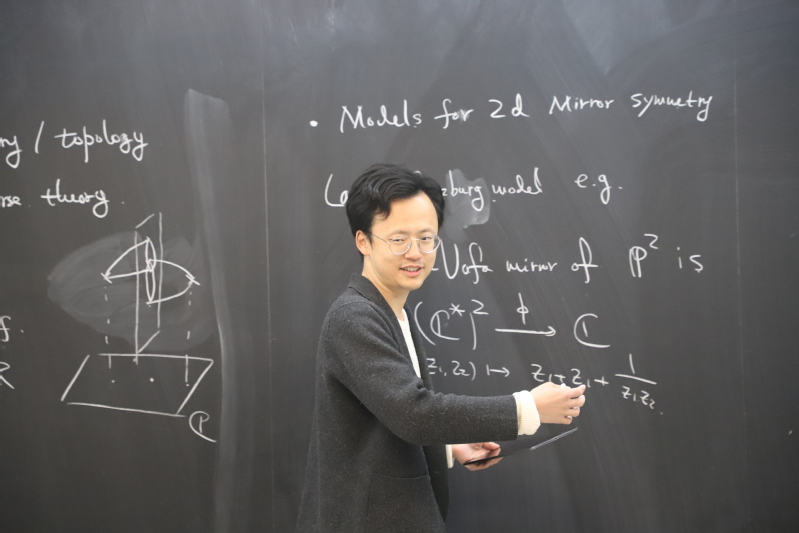 / topology
theory.
f.
ℂ
• Models for 2d Mirror symmetry
zburg model e.g.
Vafa mirror of ℙ² is
(ℂ*)² ϕ⟶ ℂ
z₁, z₂) ↦ z₁ + z₁ + 1/(z₁z₂).